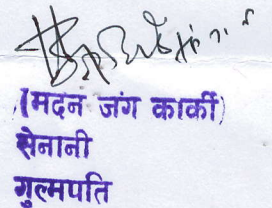 (मदन जंग कार्की)
सेनानी
गुल्मपति